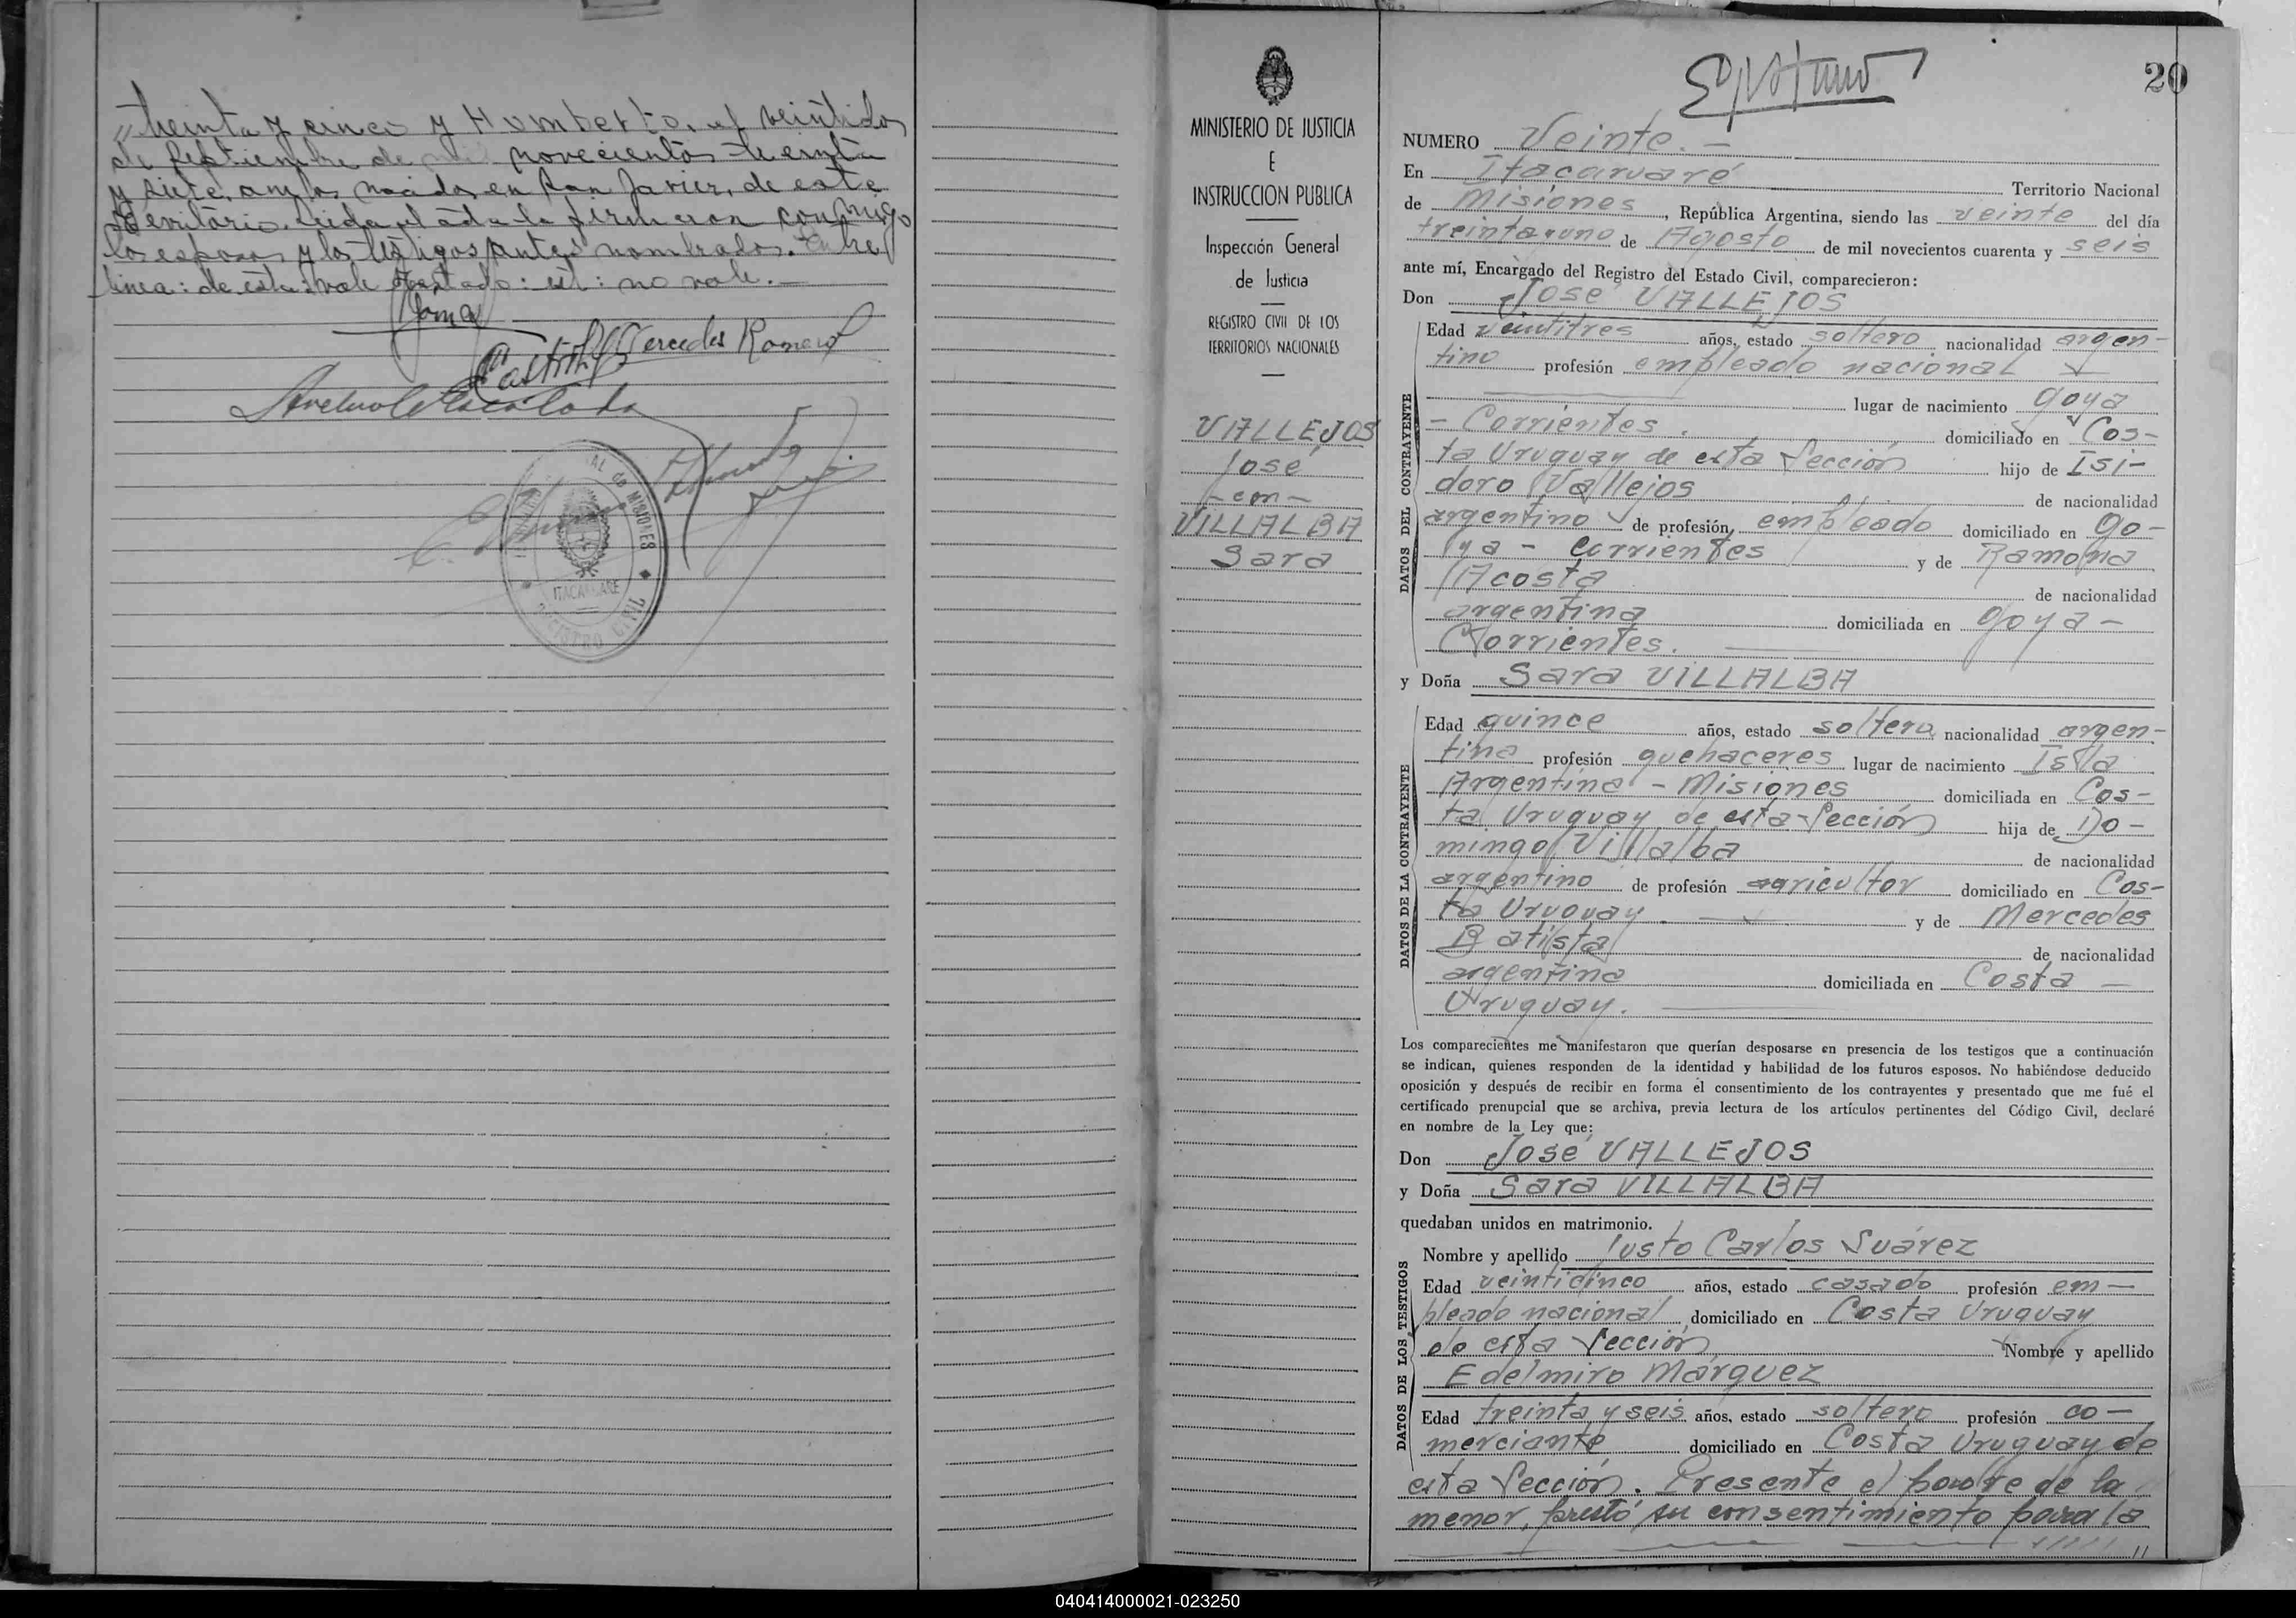 treinta y cinco y Humberto, el veintidos
de septiembre de mil novecientos treinta
y siete, ambos nacidos en San Javier, de este
Territorio. Leida el acta la firmaron conmigo
los esposos y los testigos antes nombrados. Entre
linea: de esta: vale. Testado: el: no vale.—
Mercedes Romero
TERRITORIO NACIONAL de MISIONES
ITACARUARE
REGISTRO CIVIL
MINISTERIO DE JUSTICIA
E
INSTRUCCION PUBLICA
Inspección General
de Justicia
REGISTRO CIVIL DE LOS
TERRITORIOS NACIONALES
VALLEJOS
José
- con -
VILLALBA
Sara
20
NUMERO Veinte. —
En Itacaruaré Territorio Nacional
de Misiones, República Argentina, siendo las veinte del día
treinta y uno de Agosto de mil novecientos cuarenta y seis
ante mí, Encargado del Registro del Estado Civil, comparecieron:
Don José VALLEJOS
DATOS DEL CONTRAYENTE
Edad veintitres años, estado soltero nacionalidad argen-
tino profesión empleado nacional
lugar de nacimiento Goya
- Corrientes. domiciliado en Cos-
ta Uruguay de esta Sección hijo de Isi-
doro Vallejos de nacionalidad
argentino de profesión empleado domiciliado en Go-
ya - Corrientes y de Ramona
Acosta de nacionalidad
argentina domiciliada en Goya -
Corrientes.
y Doña Sara VILLALBA
DATOS DE LA CONTRAYENTE
Edad quince años, estado soltera nacionalidad argen-
tina profesión quehaceres lugar de nacimiento Isla
Argentina - Misiones domiciliada en Cos-
ta Uruguay de esta Sección hija de Do-
mingo Villalba de nacionalidad
argentino de profesión agricultor domiciliado en Cos-
ta Uruguay. y de Mercedes
Batista de nacionalidad
argentina domiciliada en Costa —
Uruguay.
Los comparecientes me manifestaron que querían desposarse en presencia de los testigos que a continuación
se indican, quienes responden de la identidad y habilidad de los futuros esposos. No habiéndose deducido
oposición y después de recibir en forma el consentimiento de los contrayentes y presentado que me fué el
certificado prenupcial que se archiva, previa lectura de los artículos pertinentes del Código Civil, declaré
en nombre de la Ley que:
Don José VALLEJOS
y Doña Sara VILLALBA
quedaban unidos en matrimonio.
DATOS DE LOS TESTIGOS
Nombre y apellido Justo Carlos Suárez
Edad veinticinco años, estado casado profesión em—
pleado nacional domiciliado en Costa Uruguay
de esta Sección Nombre y apellido
Edelmiro Márquez
Edad treinta y seis años, estado soltero profesión co—
merciante domiciliado en Costa Uruguay de
esta Sección. Presente el padre de la
menor, prestó su consentimiento para la
040414000021-023250